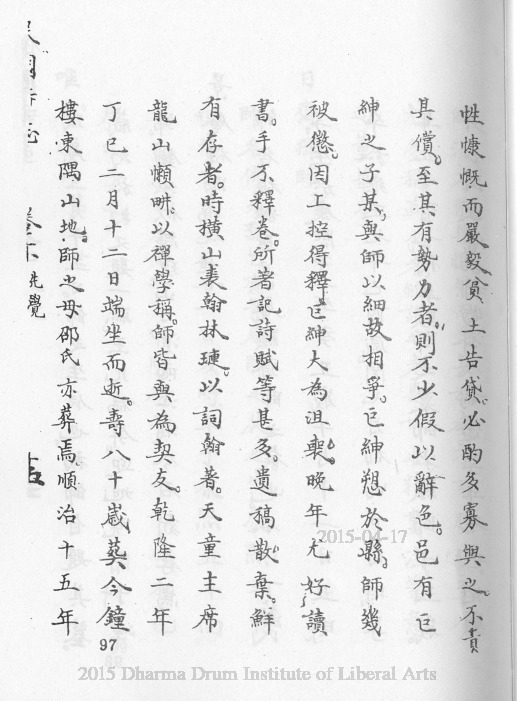 性慷慨而嚴毅貧士告貸必酌多寡與之不責
其償至其有勢力者則不少假以辭色邑有巨
紳之子某與師以細故相爭巨紳愬於縣師幾
被懲因工控得釋巨紳大為沮喪晚年尤好讀
書手不釋卷所著記詩賦等甚多遺稿散棄鮮
有存者時橫山裘翰林璉以詞翰著天童主席
龍山懶畊以禪學稱師皆與為契友乾隆二年
丁巳二月十二日端坐而逝壽八十歲葬今鐘
樓東隅山地師之母邵氏亦葬焉順治十五年
卷下 先覺
97
2015-04-17
2015 Dharma Drum Institute of Liberal Arts